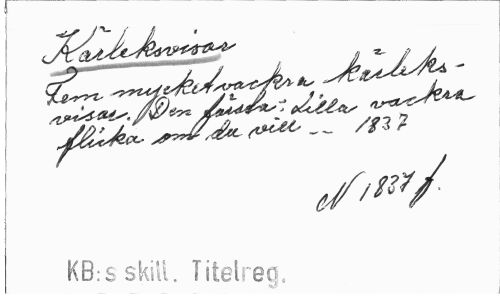 Kärleksvisor
Fem mycket vackra kärleks-
visor. Den första: Lilla vackra
flicka om du vill -- 1837
N 1837 f.
KB:s skill. Titelreg.